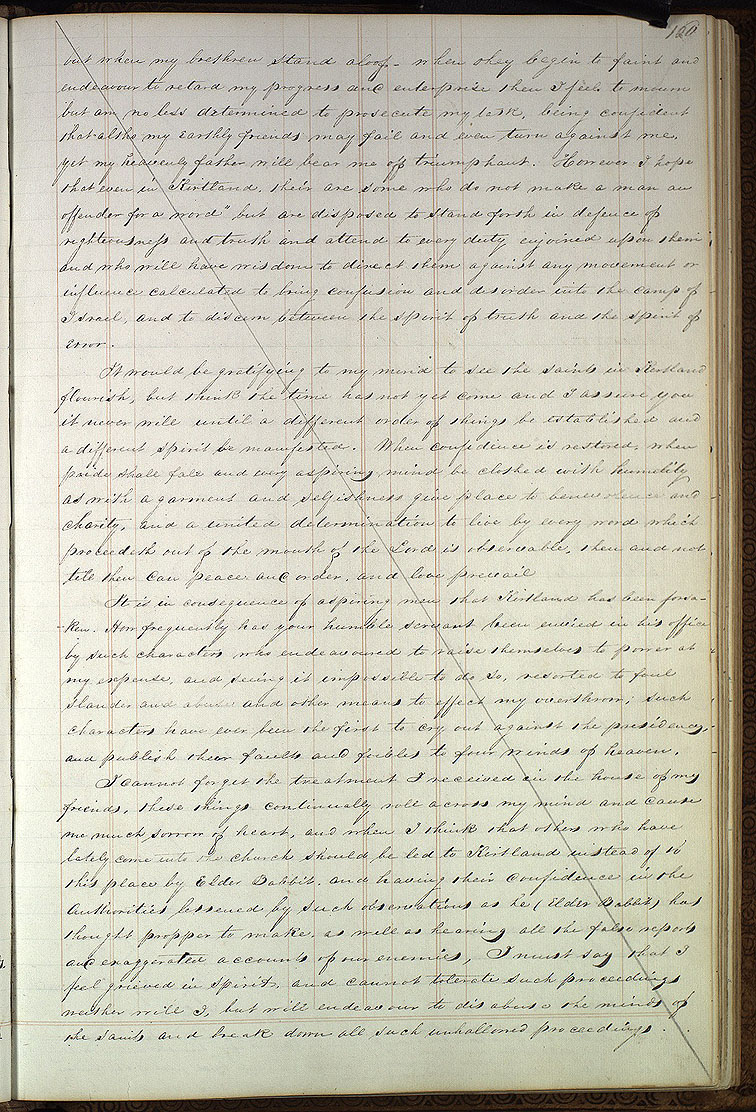 120
but when my brethren stand aloof - when they begin to faint and
endeavour to retard my progress and enterprise then I feel to mourn
but am no less determined to prosecute my task, being confident
that altho my earthly friends may fail and even turn against me,
yet my heavenly father will bear me off triumphant. However I hope
that even in Kirtland, their are some who do not make a man an
offender for a word" but are disposed to stand forth in defence of
righteousness and truth and attend to every duty enjoined upon them
and who will have wisdom to direct them against any movement or
influence calculated to bring confusion and disorder into the camp of
Israel, and to discern between the spirit of truth and the spirit of
error.
It would be gratifying to my mind to see the saints in Kirtland
flourish, but think the time has not yet come and I assure you
it never will until a different order of things be established and
a different spirit be manifested. When confidence is restored, when
pride shall fall and every aspiring mind be clothed with humility
as with a garment and selfishness give place to benevolence and
charity, and a united determination to live by every word which
proceedeth out of the mouth of the Lord is observable, then and not
till then can peace and order, and love prevail
It is in consequence of aspiring men that Kirtland has been forsa-
-ken. How frequently has your humble servant been envied in his office
by such characters, who endeavoured to raise themselves to power at
my expense, and seeing it impossible to do so, resorted to foul
slander and abuse and other means to effect my overthrow; such
characters have ever been the first to cry out against the presidency,
and publish their faults and foibles to four winds of heaven.
I cannot forget the treatment I received in the house of my
friends, these things continually roll across my mind and cause
me much sorrow of heart, and when I think that others who have
lately come into the church should be led to Kirtland instead of to
this place by Elder Babbit, and having their confidence in the
Authorities lessened by such observations as he (Elder Babbit) has
thought propper to make, as well as hearing all the false reports
and exaggerated accounts of our enemies, I must say that I
feel grieved in spirit, and cannot tolerate such proceedings
neither will I, but will endeavour to disabuse the minds of
the saints and break down all such unhallowed proceedings.